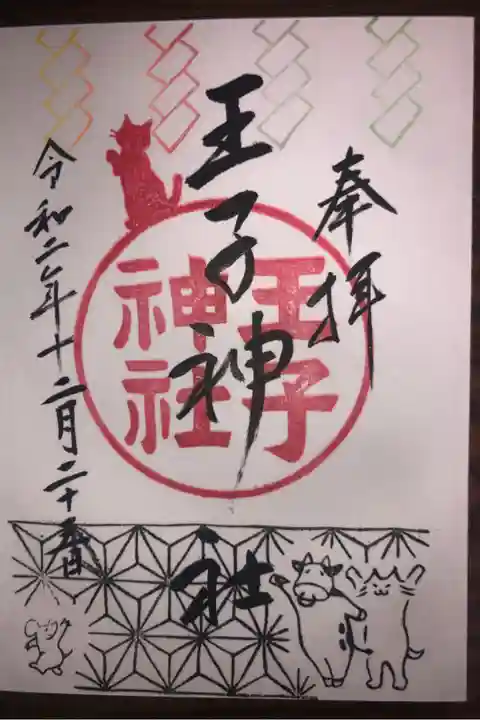 奉拝
王子神社
王子
神社
令和二年十二月二十日